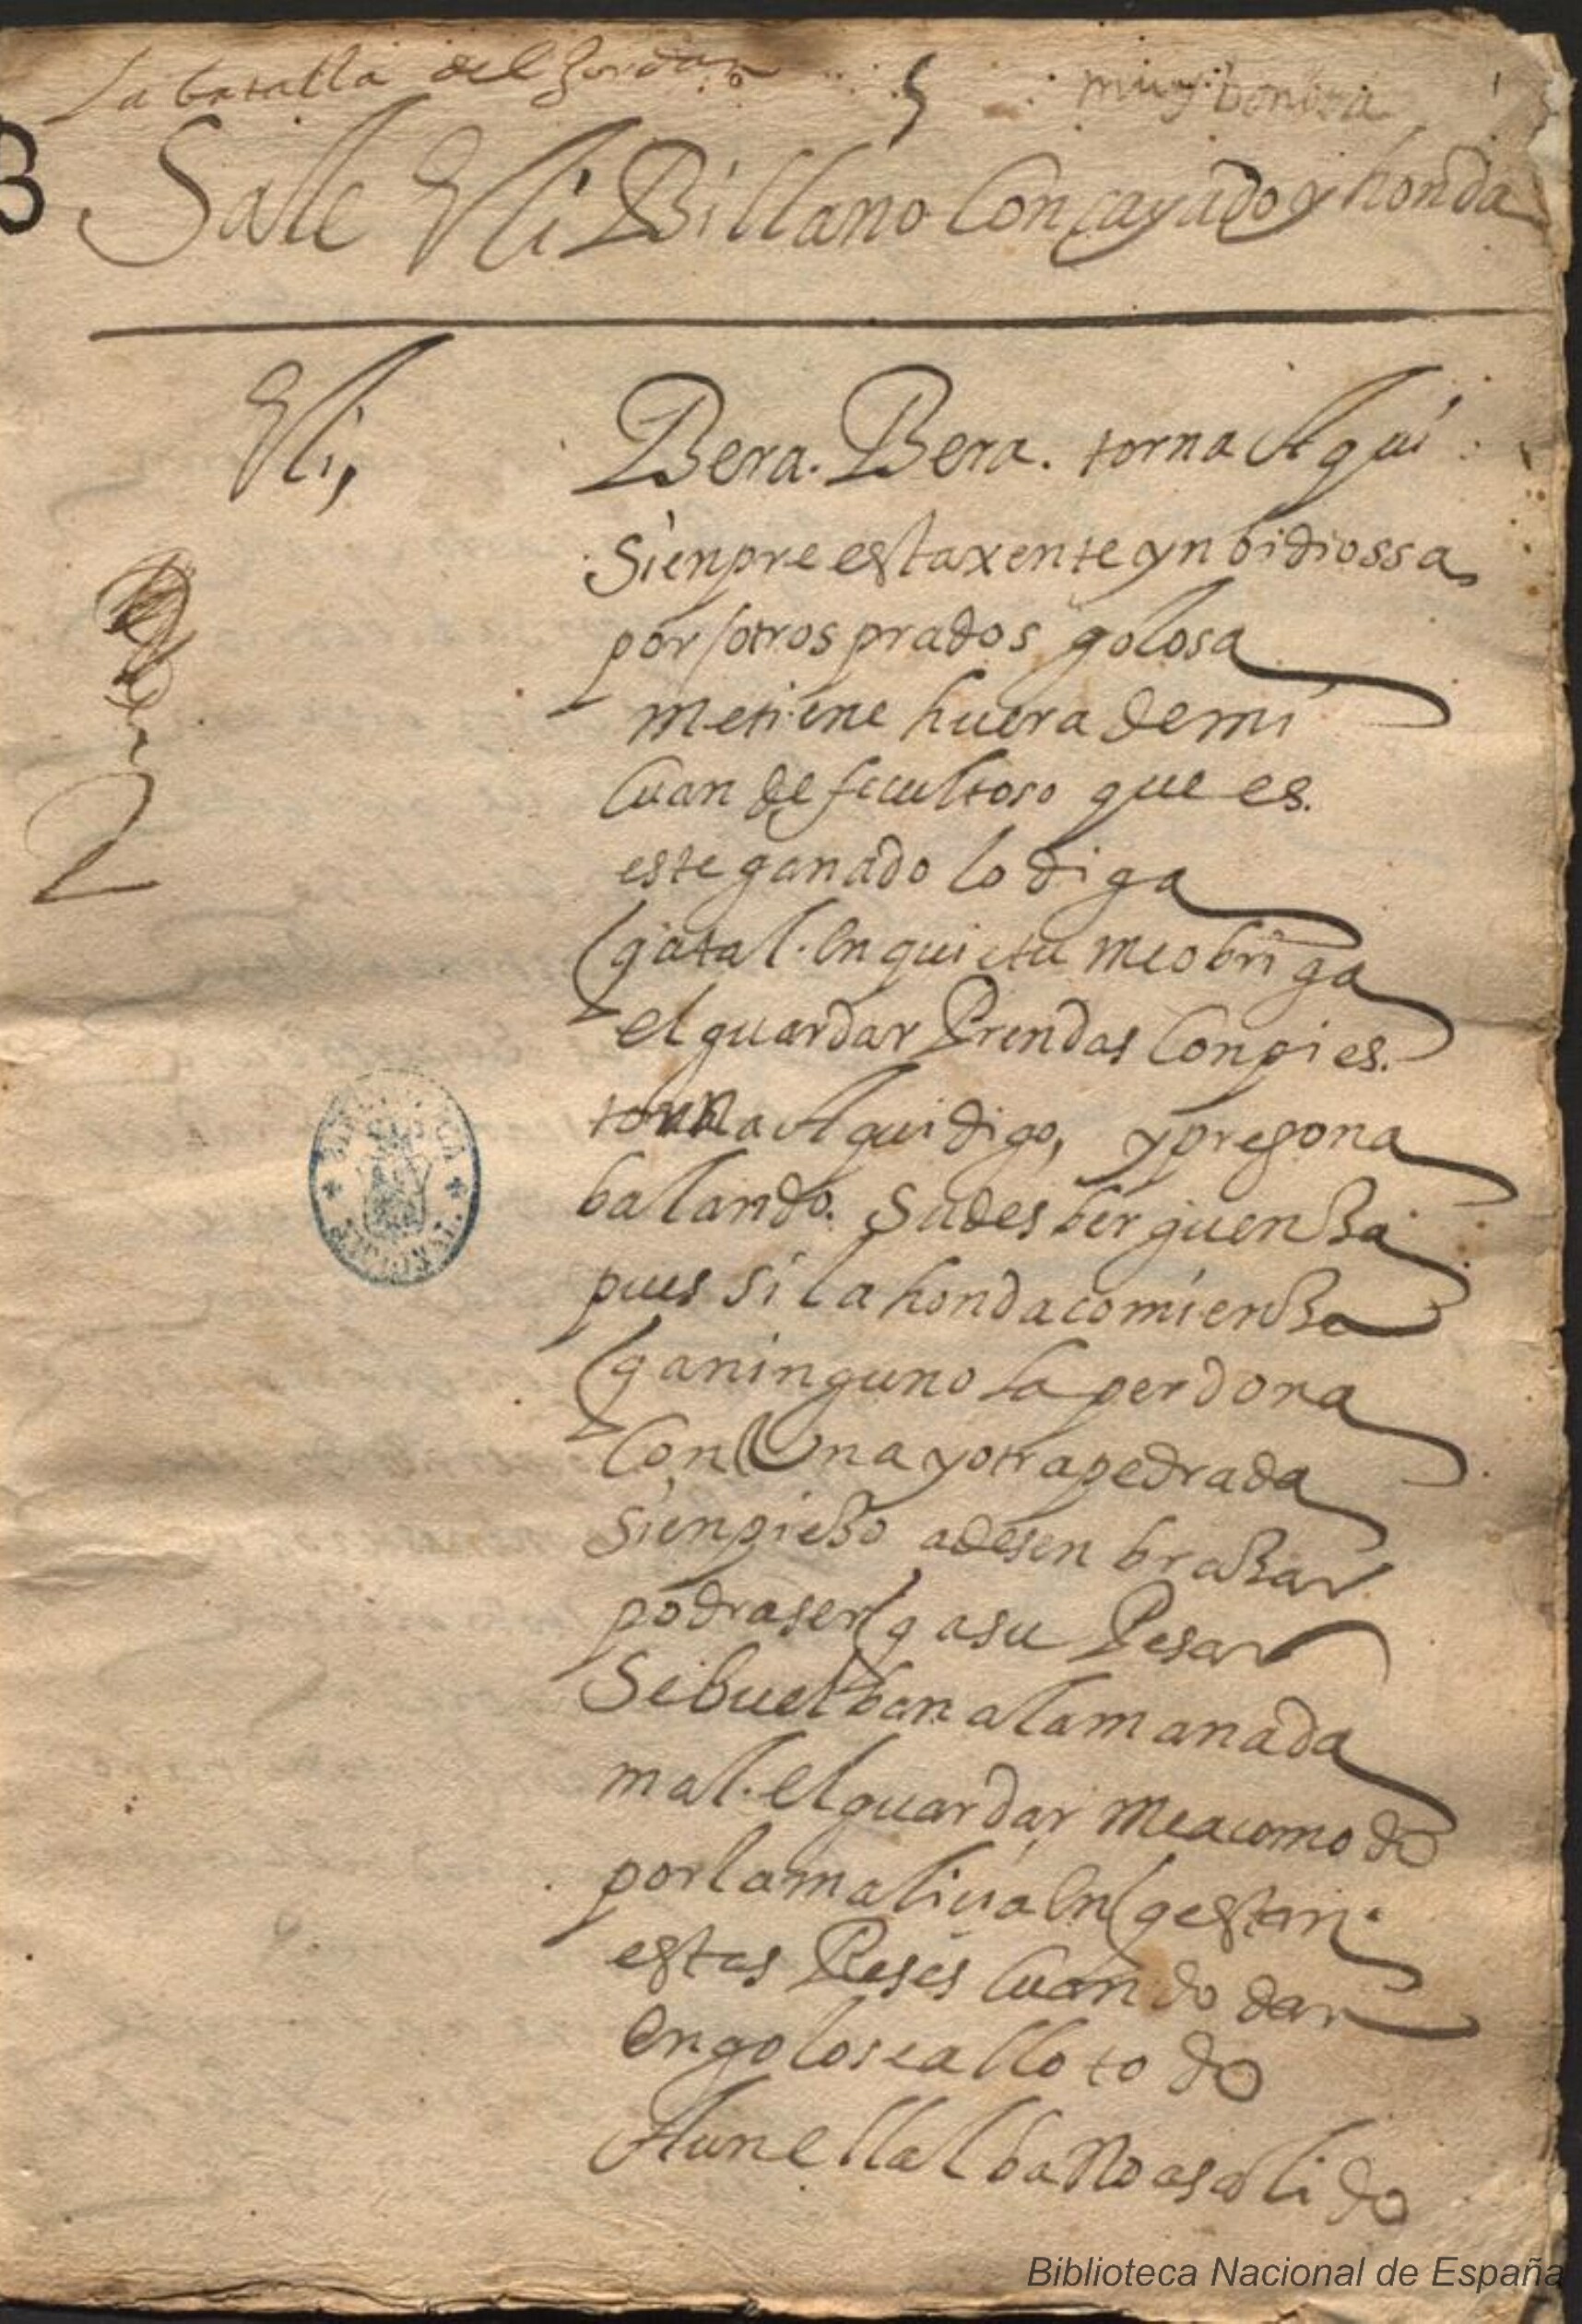 La batalla del Jordan muy bonita
B
Sale Eli Billano Con çayado y honda
Eli,
Bera. Bera. torna Aqui
Sienpre esta xente ynbidiossa
por otros prados golosa
me tiene huera de mi
Cuan deficultoso que es.
este ganado lo diga
q a tal. Enquietu me obriga
el guardar Prendas Con pies.
torna Aqui digo, y pregona
balando. su desberguenza
pues si la honda comienza
q a ninguno la perdona
Con Una y otra pedrada
si enpiezo a desenbrazar
podra ser q a su Pesar
se buelban a la manada
mal. el guardar me acomodo
por la malicia En q estan
estas Reses Cuando dan
En goloseallo todo
Aun ell alba No a salido
2
Biblioteca Nacional de España